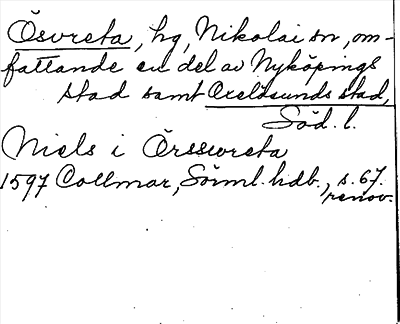 Ösvreta, hg, Nikolai sn, om-
fattande en del av Nyköpings
stad samt Oxelösunds stad,
Söd. l.
Niels i Örsswreta
1597 Collmar, Sörml. hdb., s. 67.
renov.